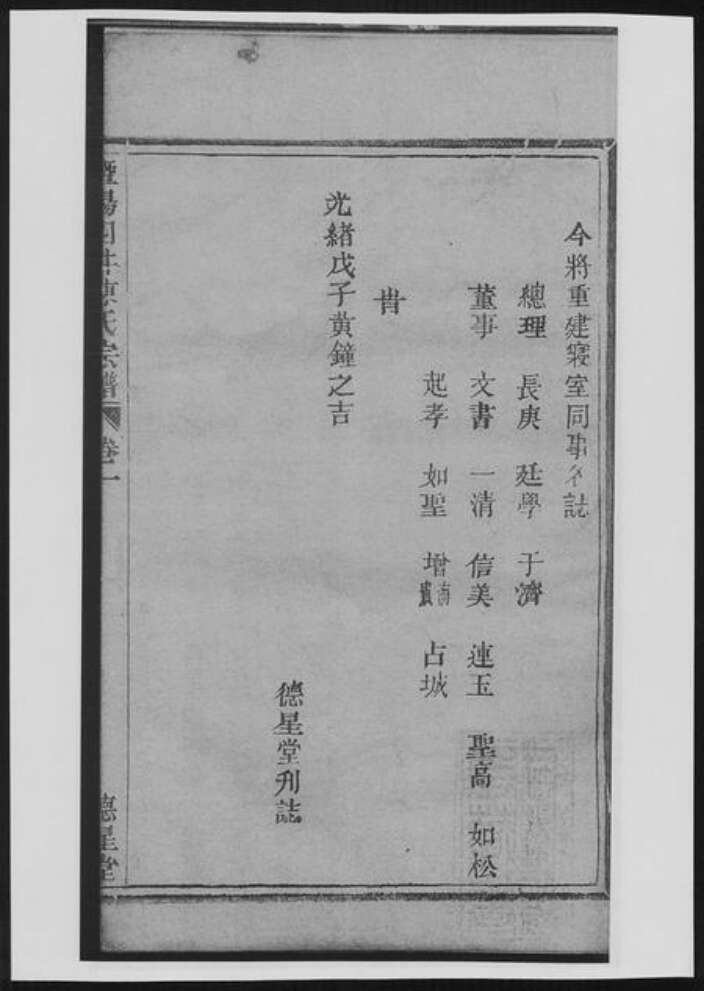 今將重建寢室同事名誌
總理 長庚 廷學 于濟
董事 文書 一清 信美 連玉 聖高 如松
起孝 如聖 增 占城
旹
光緒戊子黃鐘之吉
德星堂刋誌
暨陽 陳氏宗譜 卷一 德星堂